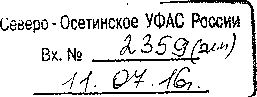 Северо-Осетинское УФАС России
Вх. № 2359(эл)
11.07.16г.